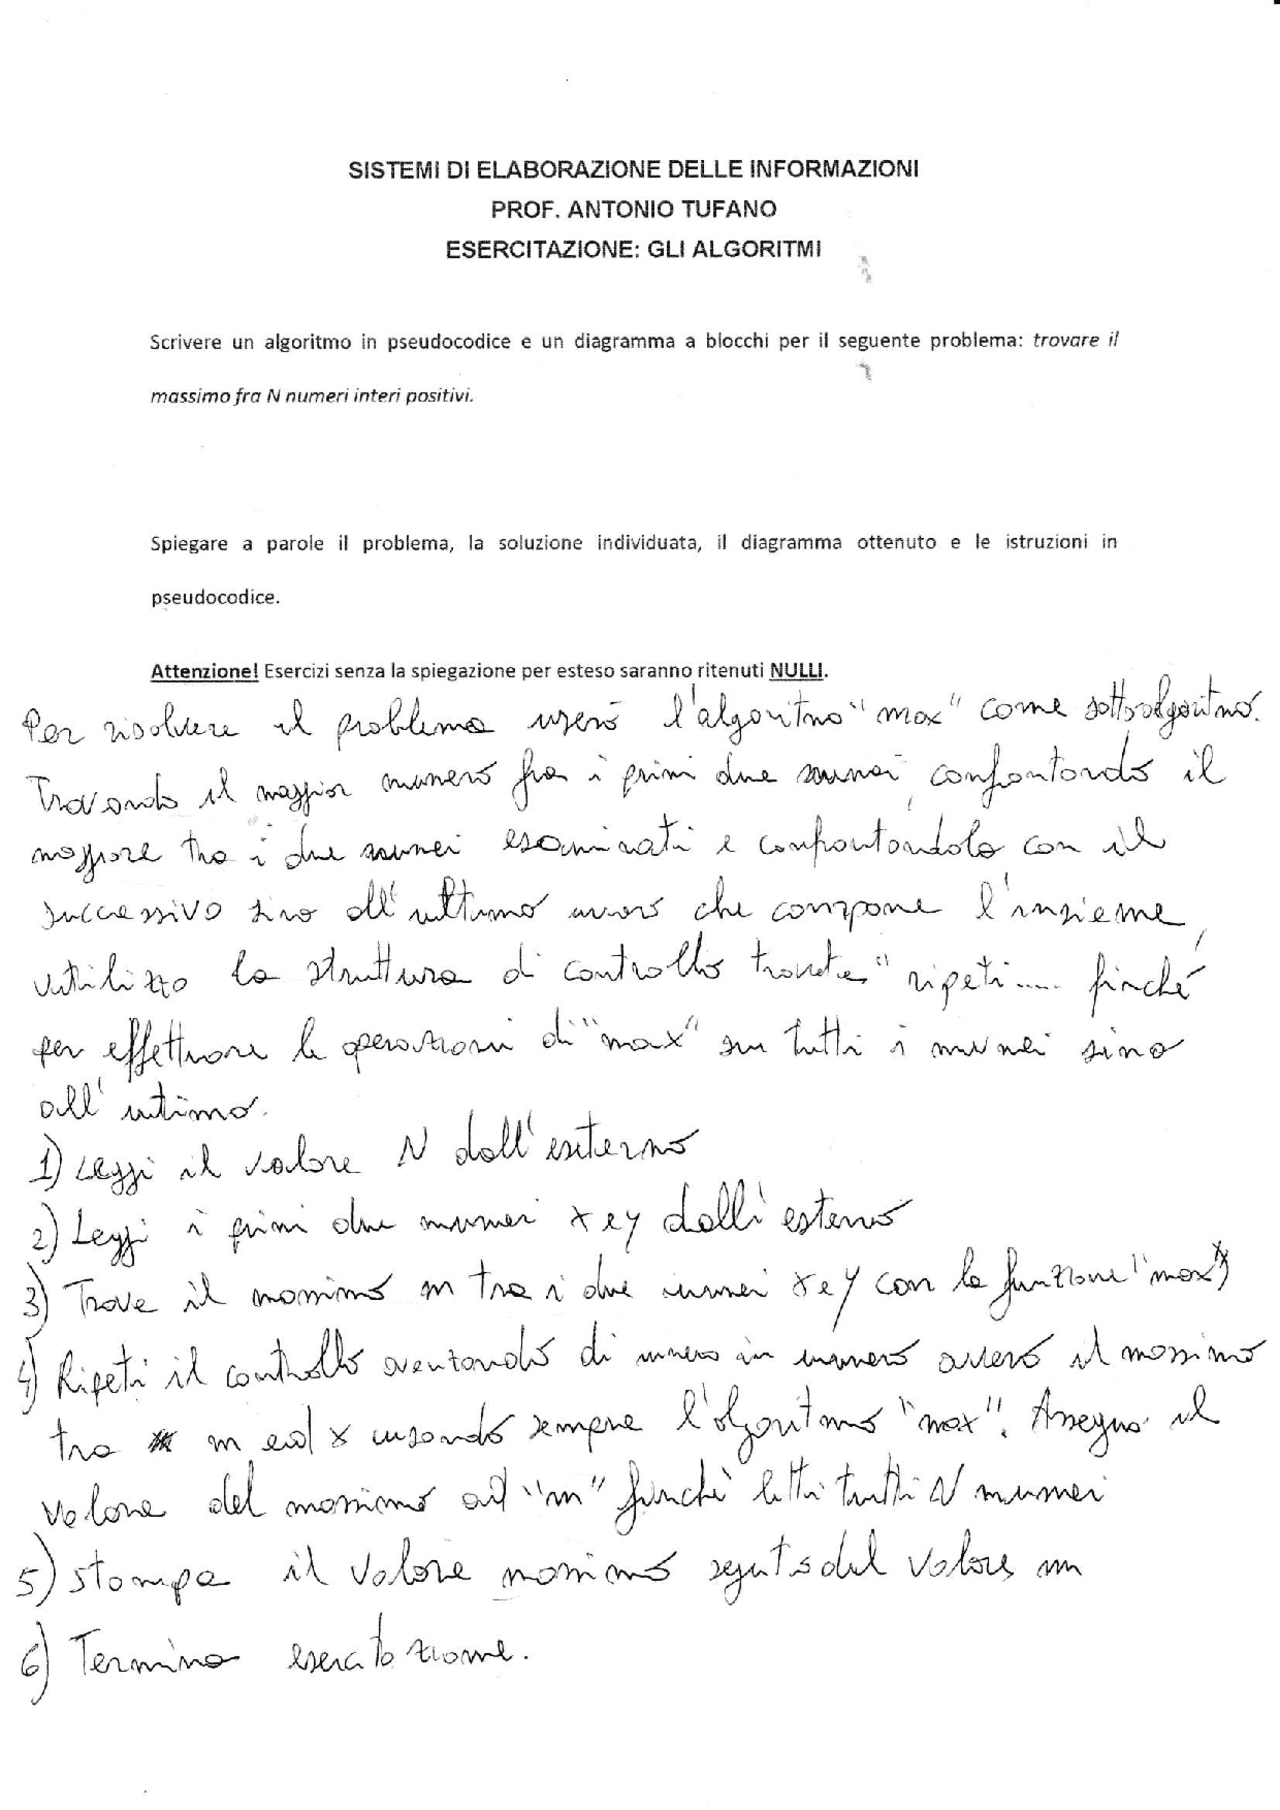 SISTEMI DI ELABORAZIONE DELLE INFORMAZIONI
PROF. ANTONIO TUFANO
ESERCITAZIONE: GLI ALGORITMI
Scrivere un algoritmo in pseudocodice e un diagramma a blocchi per il seguente problema: trovare il
massimo fra N numeri interi positivi.
Spiegare a parole il problema, la soluzione individuata, il diagramma ottenuto e le istruzioni in
pseudocodice.
Attenzione! Esercizi senza la spiegazione per esteso saranno ritenuti NULLI.
Per risolvere il problema userò l'algoritmo "max" come sottoalgoritmo.
Trovando il maggior numero fra i primi due numeri, confrontando il
maggiore tra i due numeri esaminati e confrontandolo con il
successivo sino all'ultimo numero che compone l'insieme,
utilizzo la struttura di controllo "ripeti..... finché
per effettuare le operazioni di "max" su tutti i numeri sino
all'ultimo.
1) Leggi il valore N dall'esterno
2) Leggi i primi due numeri x e y dall'esterno
3) Trova il massimo m tra i due numeri x e y con la funzione "max"
4) Ripeti il controllo avanzando di numero in numero ovvero il massimo
tra m ed x usando sempre l'algoritmo "max". Assegno il
valore del massimo ad "m" finché letti tutti N numeri
5) Stampa il valore massimo del valore m
6) Termino esercitazione.